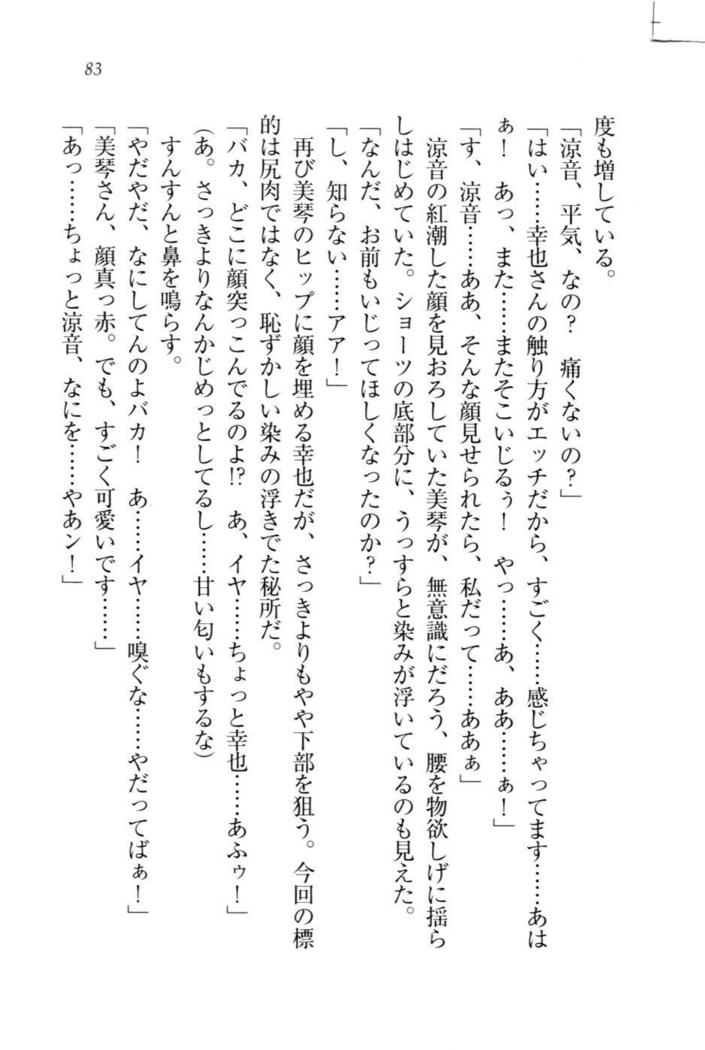 83
度も増している。
「涼音、平気、なの？　痛くないの？」
「はい……幸也さんの触り方がエッチだから、すごく……感じちゃってます……あは
ぁ！　あっ、また……またそこいじるぅ！　やっ……あ、ああ……ぁ！」
「す、涼音……ああ、そんな顔見せられたら、私だって……ああぁ」
涼音の紅潮した顔を見おろしていた美琴が、無意識にだろう、腰を物欲しげに揺ら
しはじめていた。ショーツの底部分に、うっすらと染みが浮いているのも見えた。
「なんだ、お前もいじってほしくなったのか？」
「し、知らない……アア！」
再び美琴のヒップに顔を埋める幸也だが、さっきよりもやや下部を狙う。今回の標
的は尻肉ではなく、恥ずかしい染みの浮きでた秘所だ。
「バカ、どこに顔突っこんでるのよ!?　あ、イヤ……ちょっと幸也……あふゥ！」
(あ。さっきよりなんかじめっとしてるし……甘い匂いもするな)
すんすんと鼻を鳴らす。
「やだやだ、なにしてんのよバカ！　あ……イヤ……嗅ぐな……やだってばぁ！」
「美琴さん、顔真っ赤。でも、すごく可愛いです……」
「あっ……ちょっと涼音、なにを……やあン！」